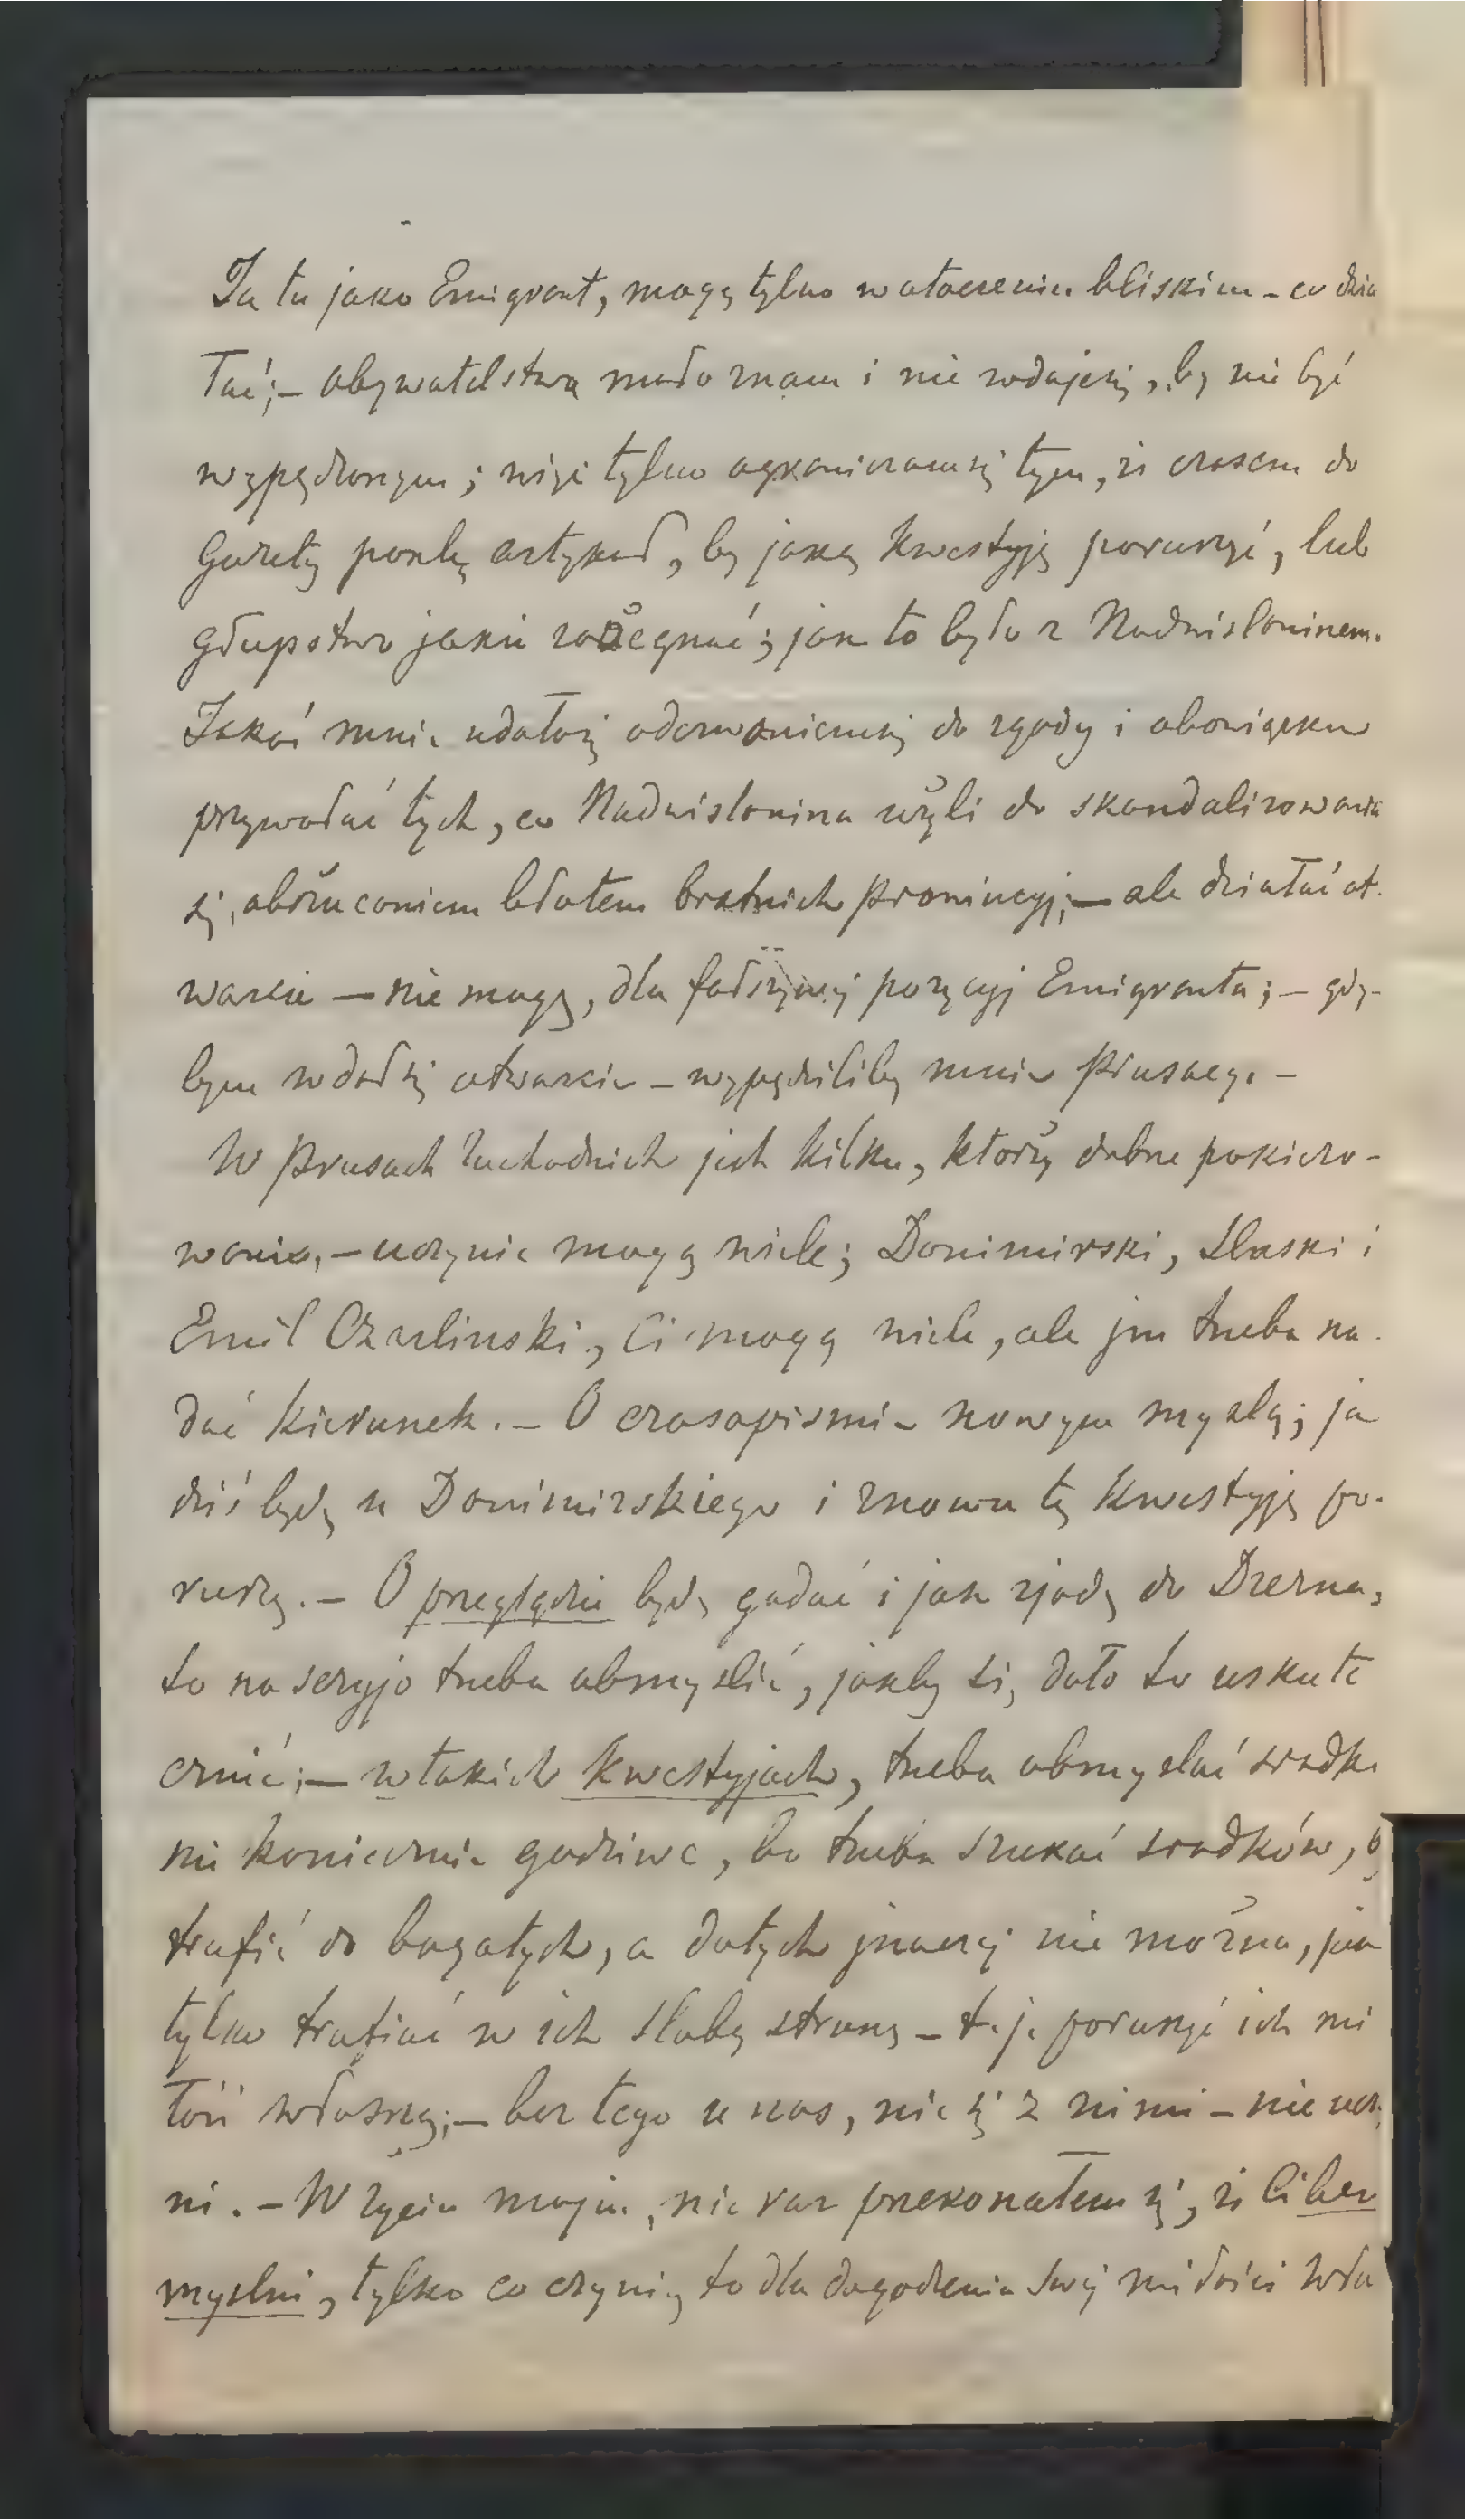 Ja tu jako Emigrant, mogę tylko w otoczeniu bliskim – co dzia
łać; – obywatelstwa mało znam i nie wdaję się, by nie być
wypędzonym; więc tylko ograniczam się tym, iż czasem do
Gazety poszlę artykuł, by jaką kwestyję poruszyć, lub
głupstwo jakie zażegnać; jak to było z Nadwiślaninem.
Jakoś mnie udało się odezwaniem się do zgody i obowiązku
przywołać tych, co Nadwiślanina użyli do skandalizowania
się, obrzuceniem błotem bratnich prowincyj; – ale działać ot-
warcie – nie mogę, dla fałszywej pozycyj Emigranta; – gdy-
bym wdał się otwarcie – wypędziliby mnie Prusacy. –
W Prusach Zachodnich jest kilku, którzy dobrze pokiero-
wani, – uczynić mogą wiele; Donimirski, Slaski i
Emil Czarlinski, Ci mogą wiele, ale jm trzeba na-
dać kierunek. – O czasopismie nowym myslę; ja
dziś będę u Donimirskiego i znowu tę kwestyję po-
ruszę. – O przeglądzie będę gadać i jak zjadę do Drezna,
to na seryjo trzeba obmyslić, jakby się dało to uskute
cznić; – w takich kwestyjach, trzeba obmyslać sradki
nie koniecznie godziwe, bo trzeba szukać sradków, by
trafić do bogatych, a do tych jnaczej nie można, jak
tylko trafiać w ich słabą stronę – t. j. poruszyć ich mi
łość własną; – bez tego u nas, nic się z nimi – nie uczy
ni. – W życiu mojem, nie raz przekonałem się, iż Ci bez
myslni, tylko co czynią to dla dogodzenia swej miłości wła